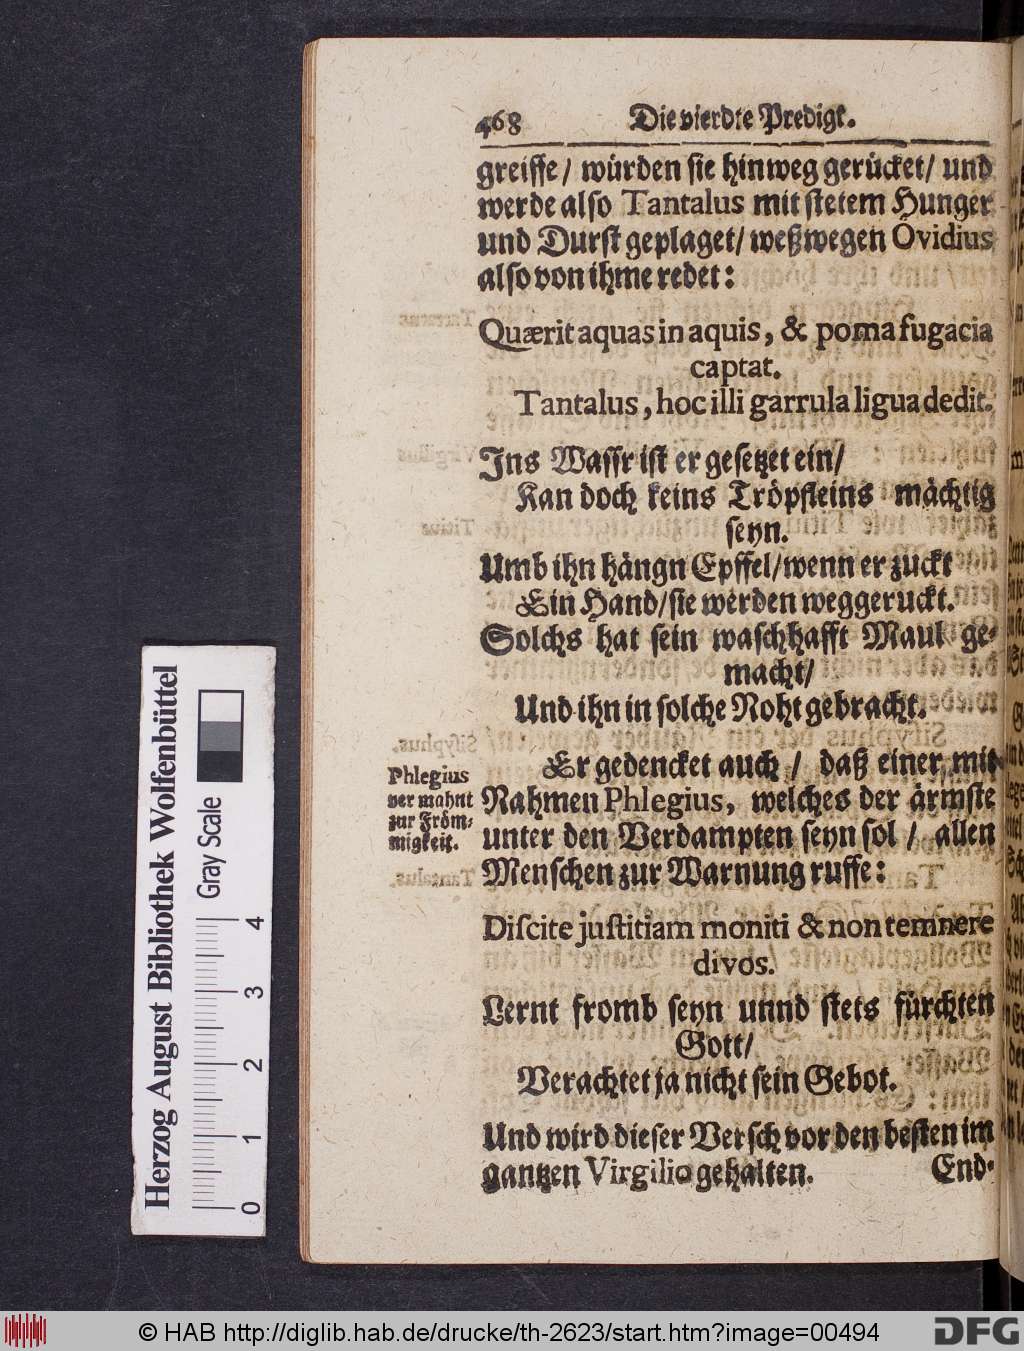 468 Die vierdte Predigt.
greiffe / würden sie hinweg gerücket / und
werde also Tantalus mit stetem Hunger
und Durst geplaget / weßwegen Ovidius
also von ihme redet:
Quærit aquas in aquis, & poma fugacia
captat.
Tantalus, hoc illi garrula ligua dedit.
Ins Wassr ist er gesetzet ein /
Kan doch keins Tröpfleins mächtig
seyn.
Umb ihn hängn Epffel / wenn er zuckt
Ein Hand / sie werden weggeruckt.
Solchs hat sein waschhafft Maul ge-
macht /
Und ihn in solche Noht gebracht.
Er gedencket auch / daß einer mit
Nahmen Phlegius, welches der ärmste
unter den Verdampten seyn sol / allen
Menschen zur Warnung ruffe:
Phlegius
vermahnt
zur Fröm-
migkeit.
Discite justitiam moniti & non temnere
divos.
Lernt fromb seyn unnd stets fürchten
Gott /
Verachtet ja nicht sein Gebot.
Und wird dieser Versch vor den besten im
gantzen Virgilio gehalten.
End-
Herzog August Bibliothek Wolfenbüttel
Gray Scale
0 1 2 3 4
© HAB http://diglib.hab.de/drucke/th-2623/start.htm?image=00494
DFG